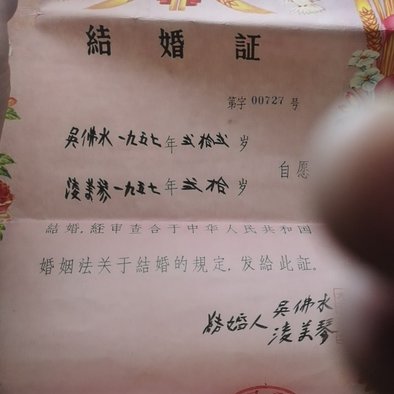 結婚証
第字00727号
吳佛水一九五七年弍拾弍岁
自愿
凌美琴一九五七年弍拾岁
結婚,經审查合于中华人民共和国
婚姻法关于結婚的規定,发給此証。
結婚人 吳佛水
凌美琴